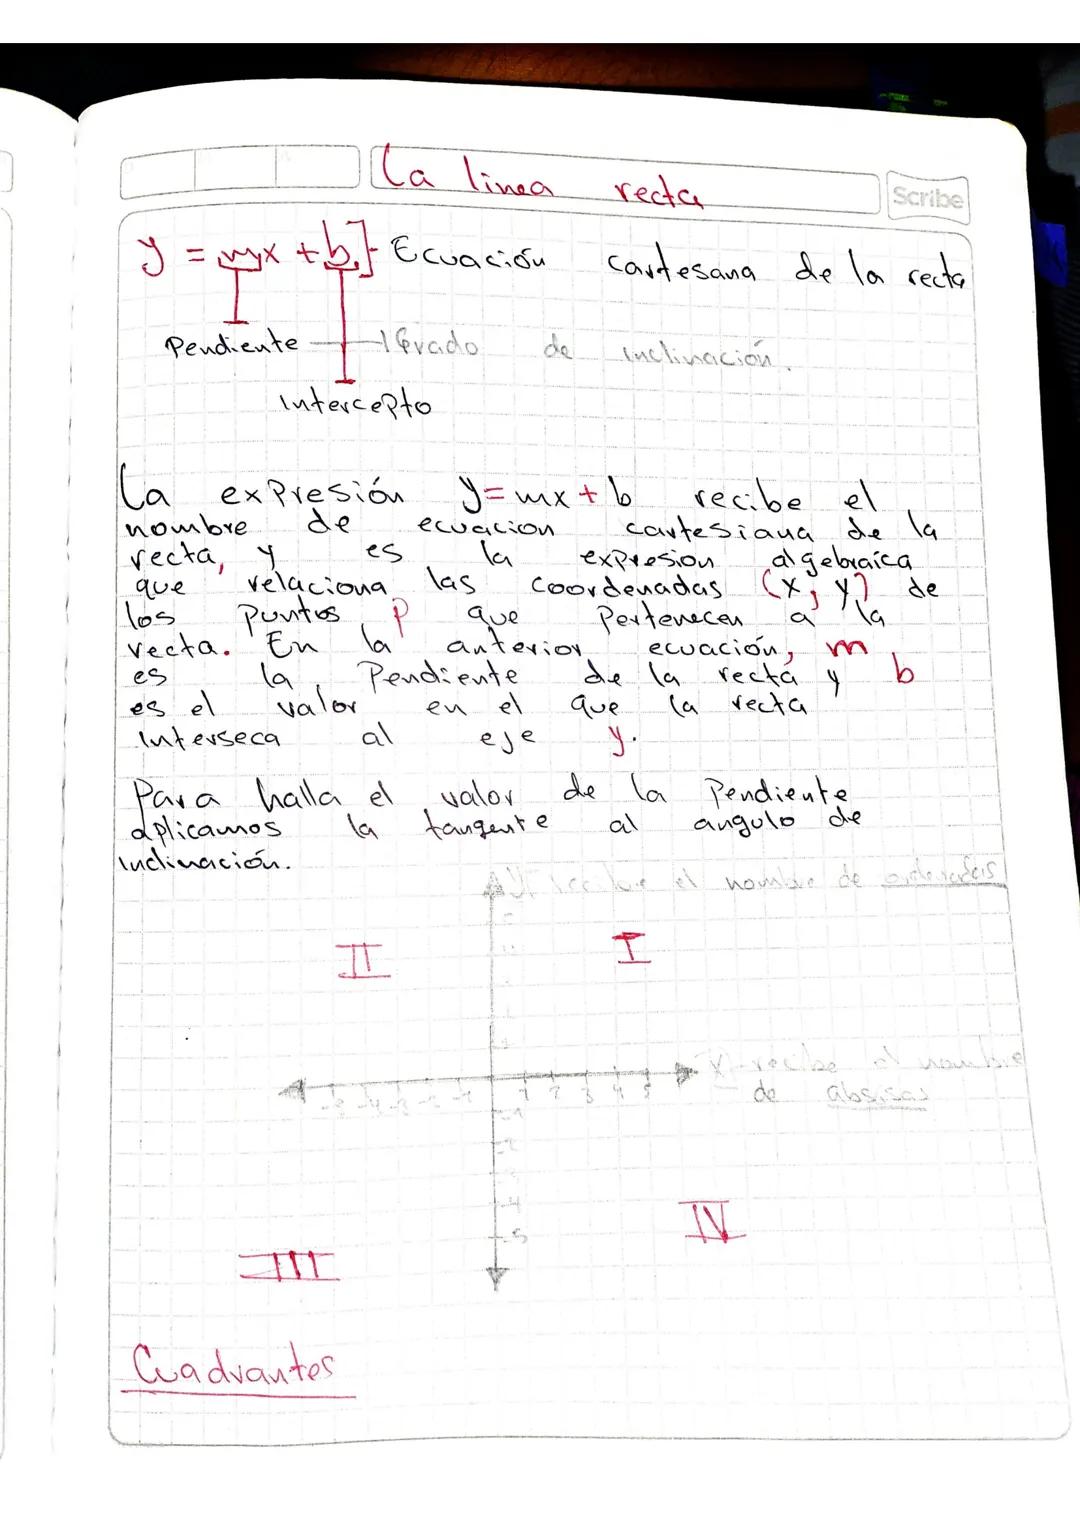 La linea recta
Scribe
y = mx + b } Ecuación cartesana de la recta
Pendiente Grado de inclinación.
Intercepto
La expresión y = mx + b recibe el
nombre de ecuacion cartesiana de la
recta, y es la expresion algebraíca
que relaciona las coordenadas (x, y) de
los puntos P que Pertenecen a la
recta. En la anterior ecuación, m
es la Pendiente de la recta y b
es el valor en el que la recta
Interseca al eje y.
Para halla el valor de la Pendiente
aplicamos la tangente al angulo de
Inclinación.
y recibe el nombre de ordenadas
II I
x recibe el nombre
1 2 3 4 5
de absisas
-1
-2
-4
-5
IV
III
Cuadrantes